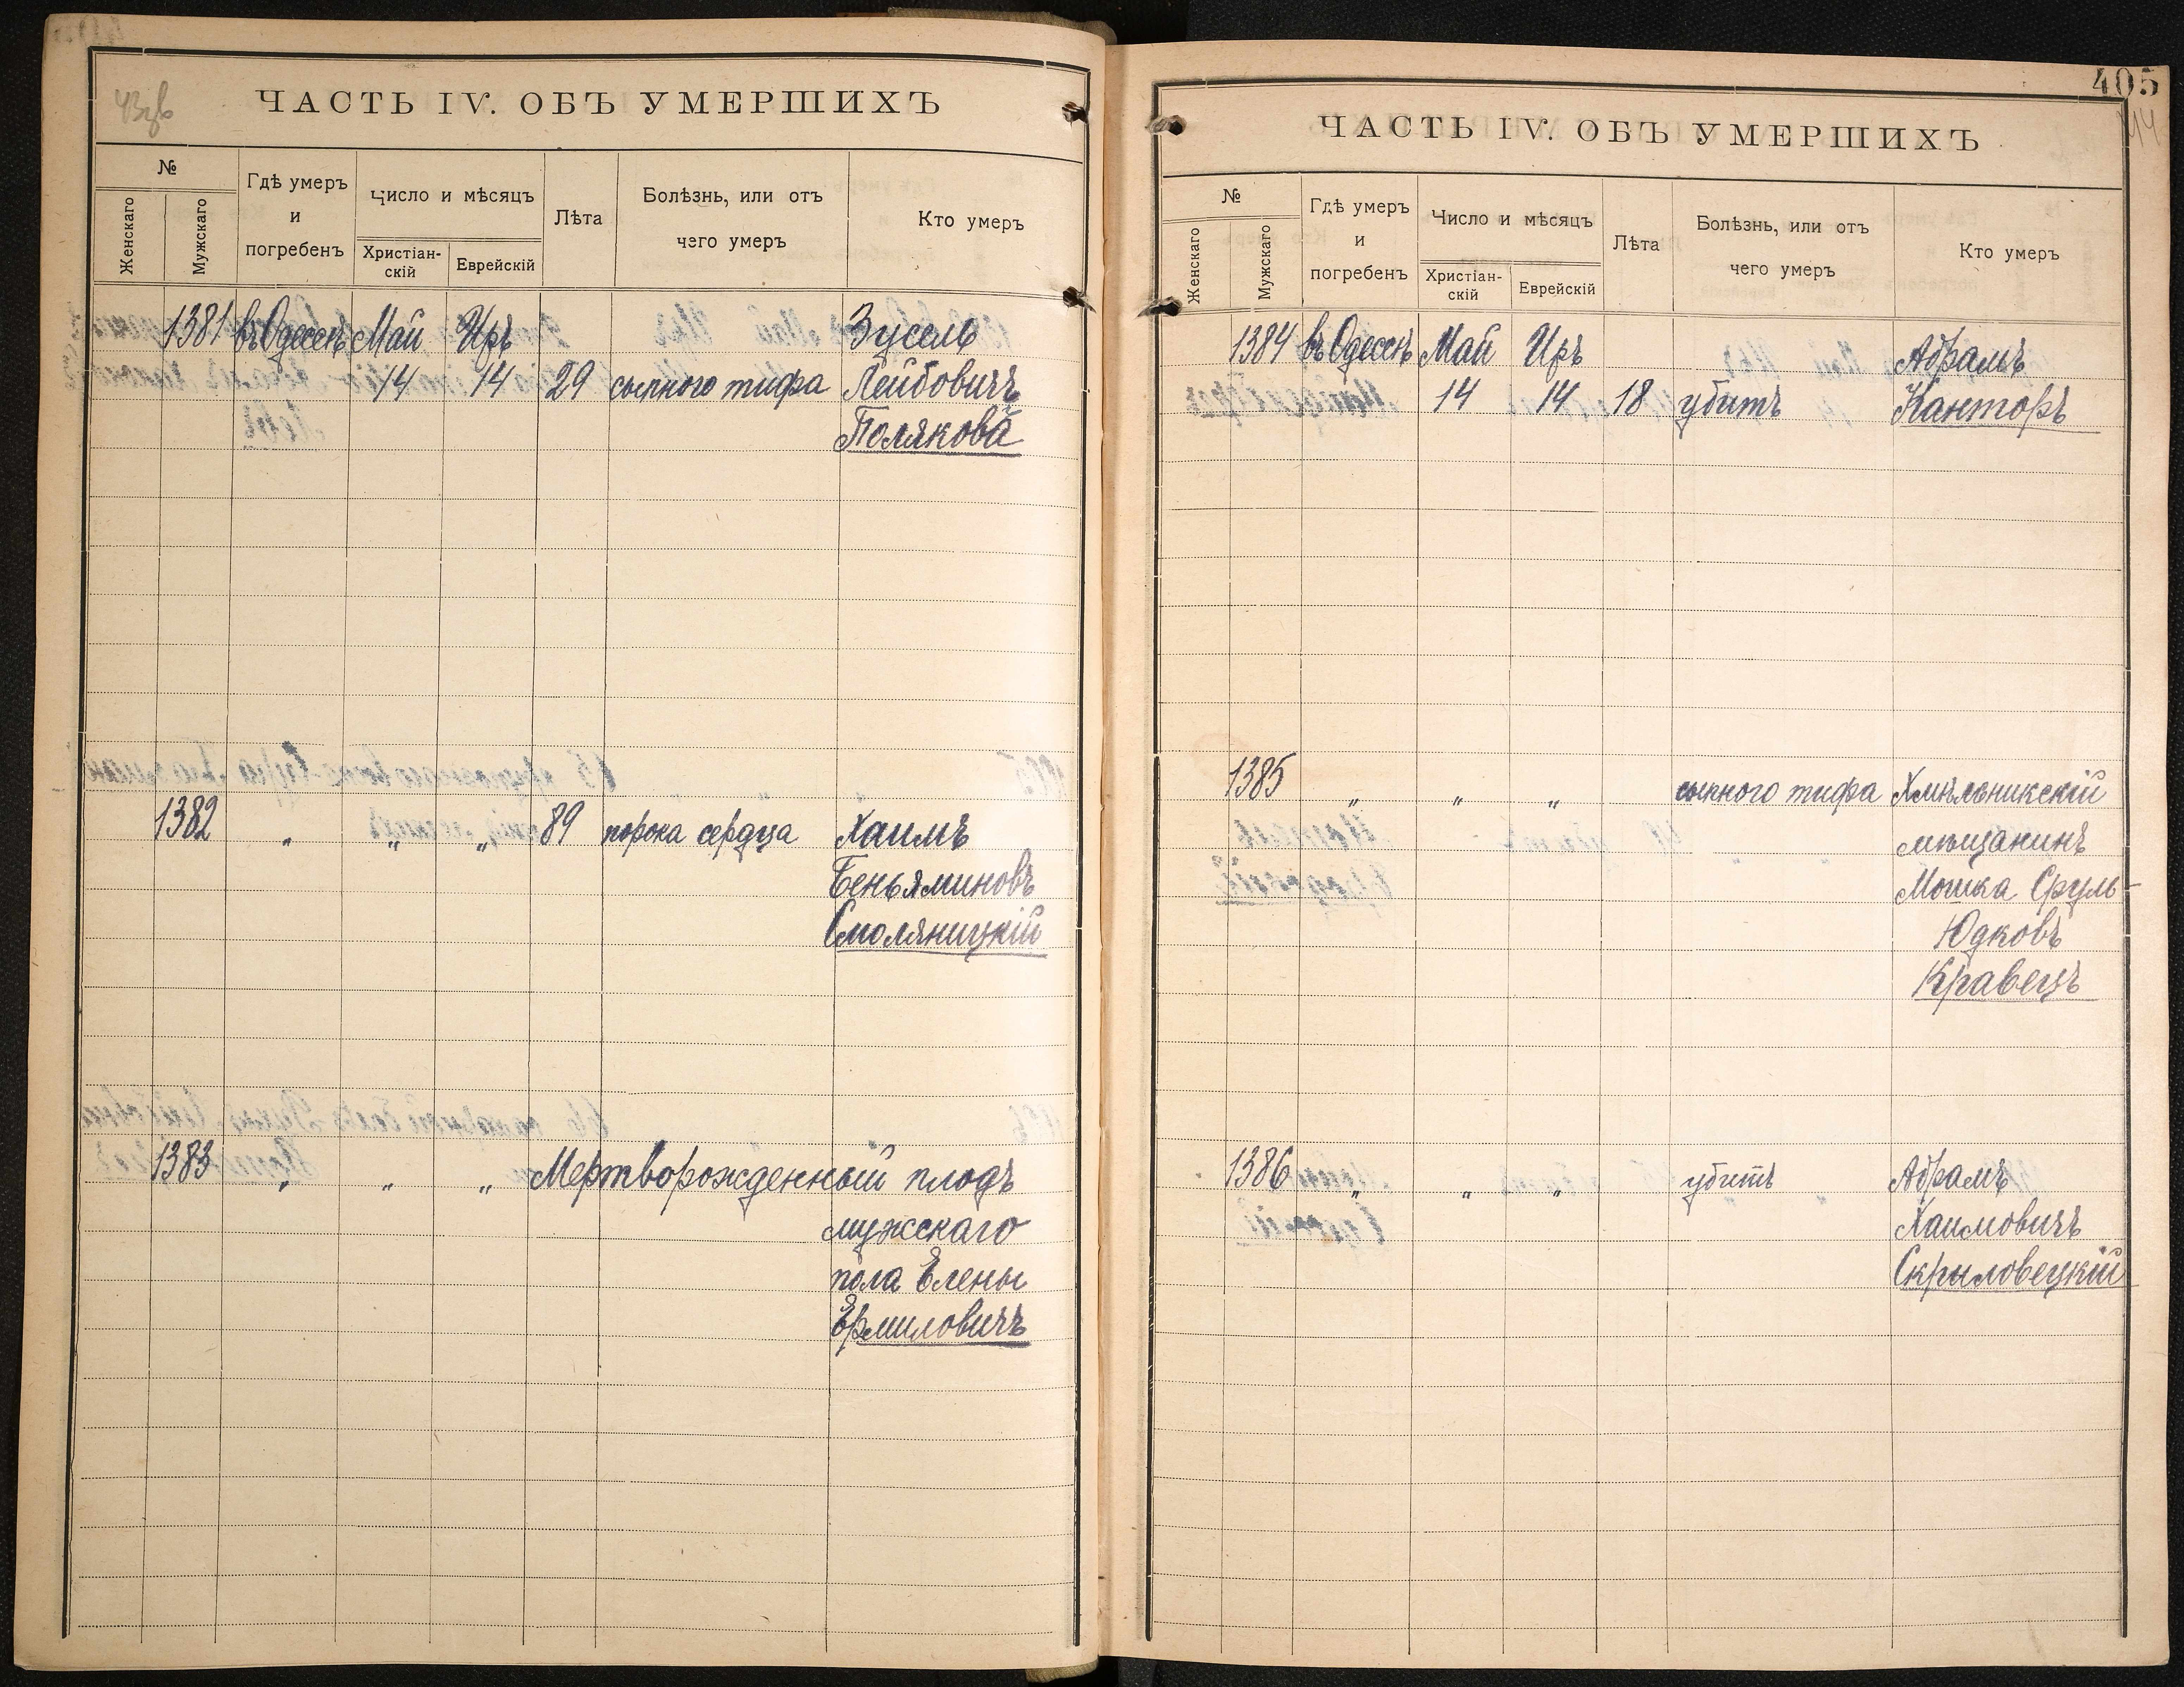 ЧАСТЬ IV. ОБЪ УМЕРШИХЪ
№
Женскаго
Мужскаго
Гдѣ умеръ
и
погребенъ
Число и мѣсяцъ
Христіан-
скій
Еврейскій
Лѣта
Болѣзнь, или отъ
чего умеръ
Кто умеръ
1381 въ Одессѣ Май Иръ Зусель
14 14 29 сыпного тифа Лейбовичъ
Поляковъ
1382 „ „ „ 89 порока сердца Хаимъ
Беньяминовъ
Смоляницкій
1383 „ „ „ Мертворожденный плодъ
мужскаго
пола Елены
Ермиловичъ
405
ЧАСТЬ IV. ОБЪ УМЕРШИХЪ
№
Женскаго
Мужскаго
Гдѣ умеръ
и
погребенъ
Число и мѣсяцъ
Христіан-
скій
Еврейскій
Лѣта
Болѣзнь, или отъ
чего умеръ
Кто умеръ
1384 въ Одессѣ Май Иръ Абрамъ
14 14 18 убитъ Канторъ
1385 „ „ „ сыпного тифа Хмѣльникскій
мѣщанинъ
Мошка Сруль-
Юдковъ
Кравецъ
1386 „ „ „ убитъ Абрамъ
Хаимовичъ
Скрыловецкій